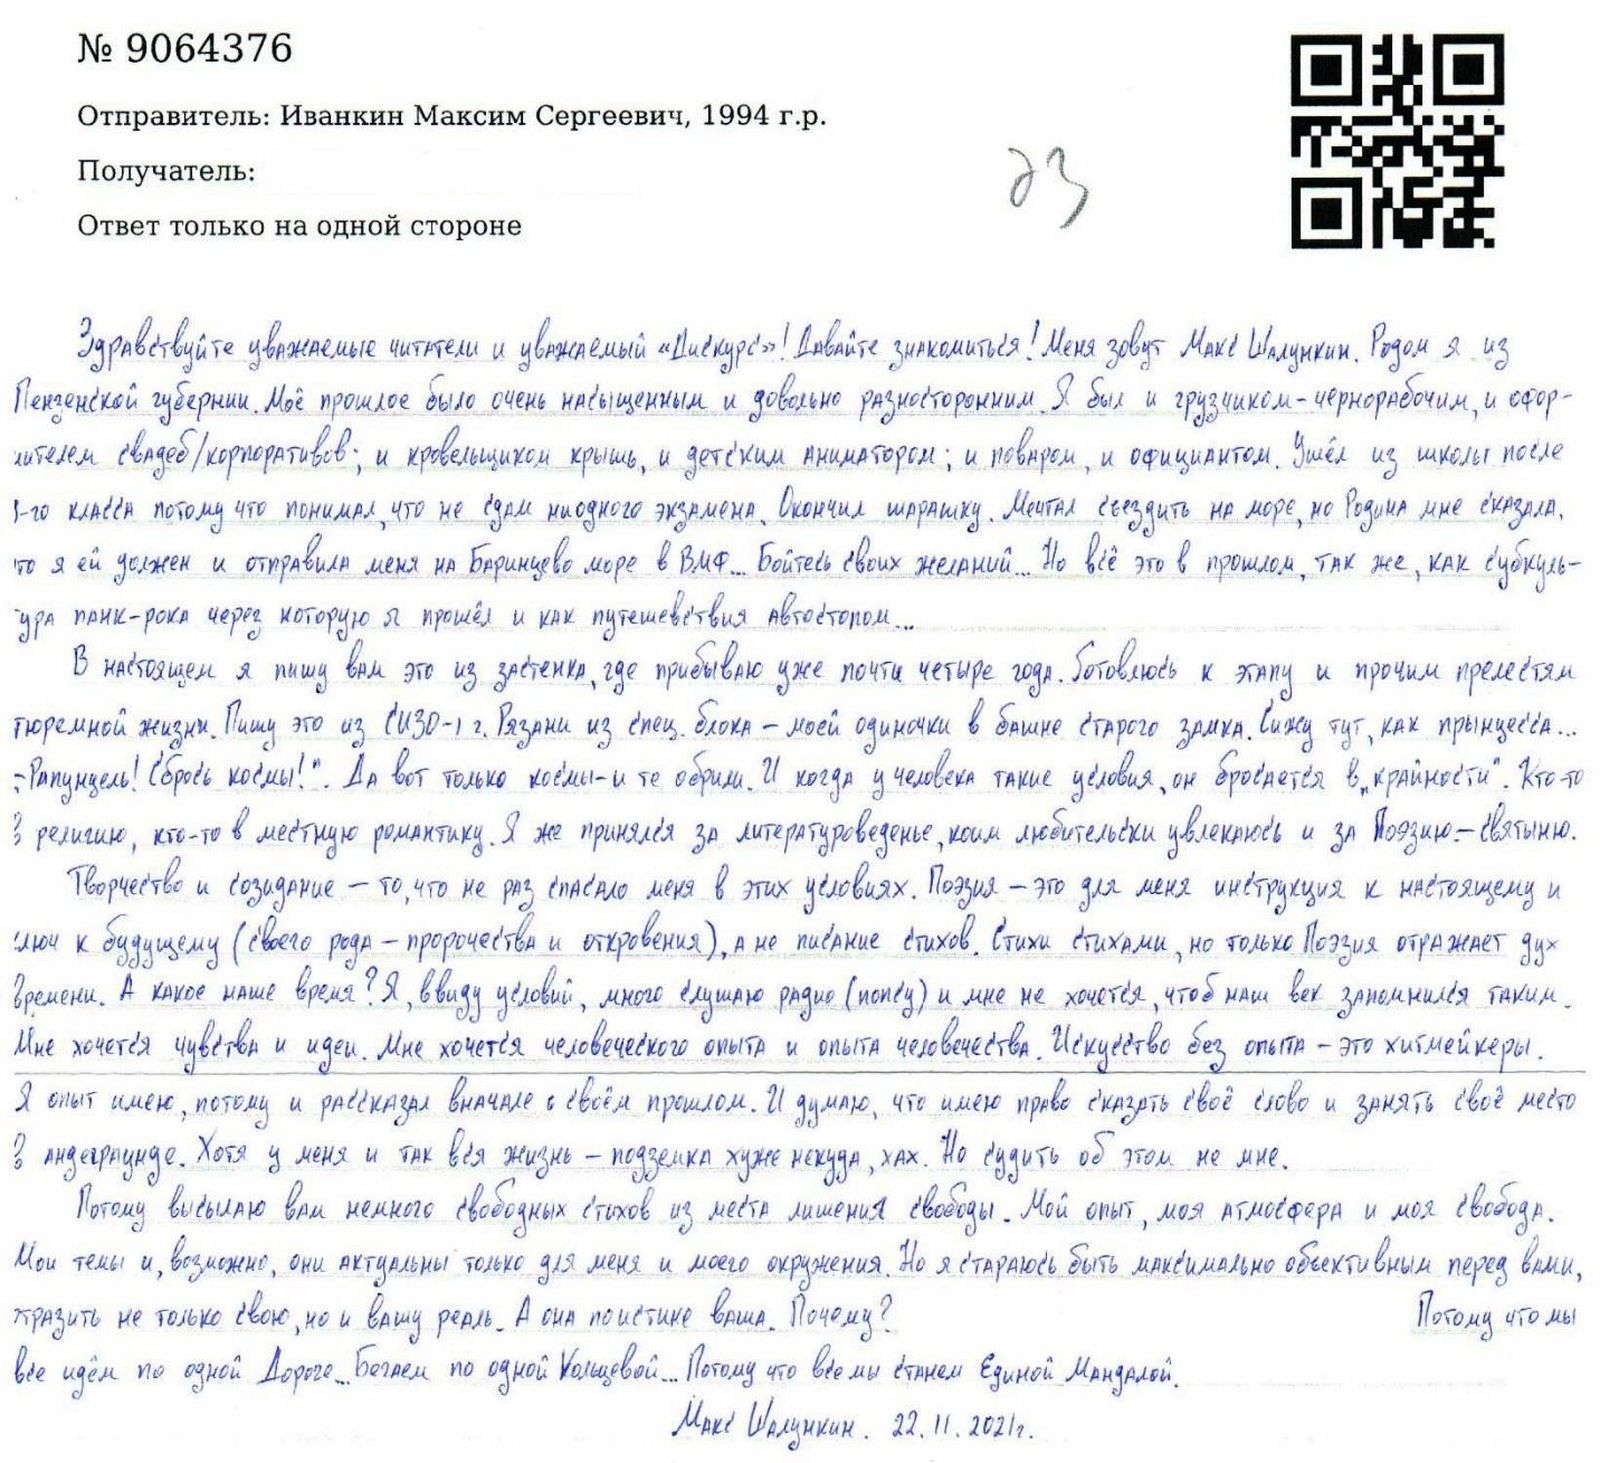 № 9064376
Отправитель: Иванкин Максим Сергеевич, 1994 г.р.
Получатель:
Ответ только на одной стороне
Здравствуйте уважаемые читатели и уважаемый «Дискурс»! Давайте знакомиться! Меня зовут Макс Шалункин. Родом я из
Пензенской губернии. Моё прошлое было очень насыщенным и довольно разносторонним. Я был и грузчиком-чернорабочим, и офор-
ителем свадеб/корпоративов; и кровельщиком крышь, и детским аниматором; и поваром, и официантом. Ушёл из школы после
-го класса потому что понимал, что не сдам ниодного экзамена. Окончил шарашку. Мечтал съездить на море, но Родина мне сказала,
то я ей должен и отправила меня на Баринцево море в ВМФ... Бойтесь своих желаний... Но всё это в прошлом, так же, как субкуль-
ура панк-рока через которую я прошёл и как путешевствия автостопом...
В настоящем я пишу вам это из застенка, где прибываю уже почти четыре года. Готовлюсь к этапу и прочим прелестям
тюремной жизни. Пишу это из СИЗО-1 г. Рязани из спец. блока – моей одиночки в башне старого замка. Сижу тут, как прынцесса...
- Рапунцель! Сбрось космы!". Да вот только космы-и те обрили. И когда у человека такие условия, он бросается в „крайности". Кто-то
в религию, кто-то в местную романтику. Я же принялся за литературоведенье, коим любительски увлекаюсь и за Поэзию – святыню.
Творчество и созидание – то, что не раз спасало меня в этих условиях. Поэзия – это для меня инструкция к настоящему и
люч к будущему (своего рода – пророчества и откровения), а не писание стихов. Стихи стихами, но только Поэзия отражает дух
времени. А какое наше время? Я, ввиду условий, много слушаю радио (попсу) и мне не хочется, чтоб наш век запомнился таким.
Мне хочется чувства и идеи. Мне хочется человеческого опыта и опыта человечества. Искусство без опыта – это хитмейкеры.
Я опыт имею, потому и рассказал вначале о своём прошлом. И думаю, что имею право сказать своё слово и занять своё место
в андеграунде. Хотя у меня и так вся жизнь – подземка хуже некуда, хах. Но судить об этом не мне.
Потому высылаю вам немного свободных стихов из места лишения свободы. Мой опыт, моя атмосфера и моя свобода.
Мои темы и, возможно, они актуальны только для меня и моего окружения. Но я стараюсь быть максимально объективным перед вами,
тразить не только свою, но и вашу реаль. А она поистине ваша. Почему? Потому что мы
все идём по одной Дороге... Бегаем по одной Кольцевой... Потому что все мы станем Единой Мандалой.
Макс Шалункин. 22.11.2021г.